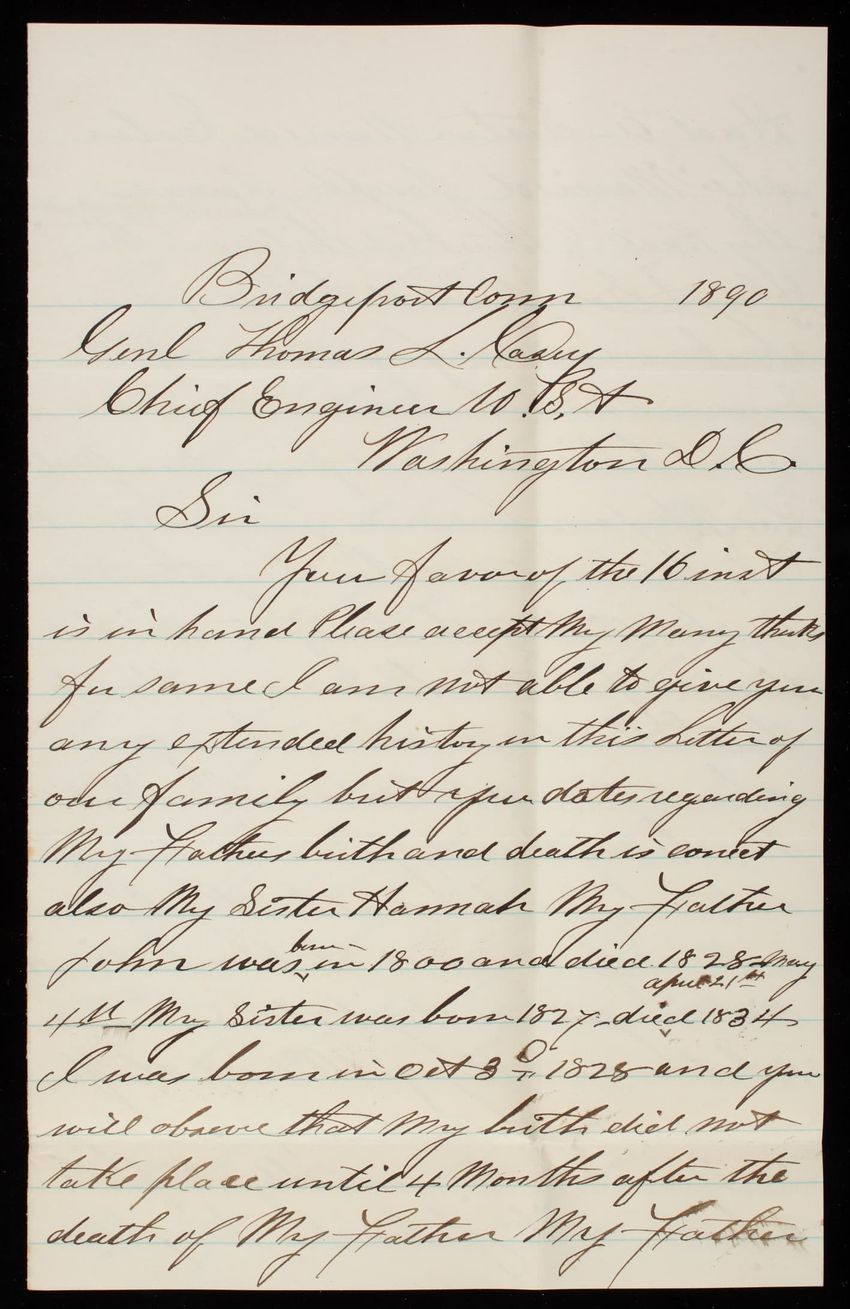 Bridgeport Conn 1890
Genl Thomas L. Casey
Chief Engineer U.S.A
Washington D.C.
Sir
Your favor of the 16 inst
is in hand Please accept My Many thanks
for same I am not able to give you
any extended history in this Letter of
our family but your dates regarding
My Fathers birth and death is correct
also My Sister Hannah My Father
born
John was in 1800 and died 1828 May
april 21st
4th My Sister was born 1827 - died 1834
I was born in Oct 3 1828 and you
will observe that My birth did not
take place until 4 Months after the
death of My Father My Father